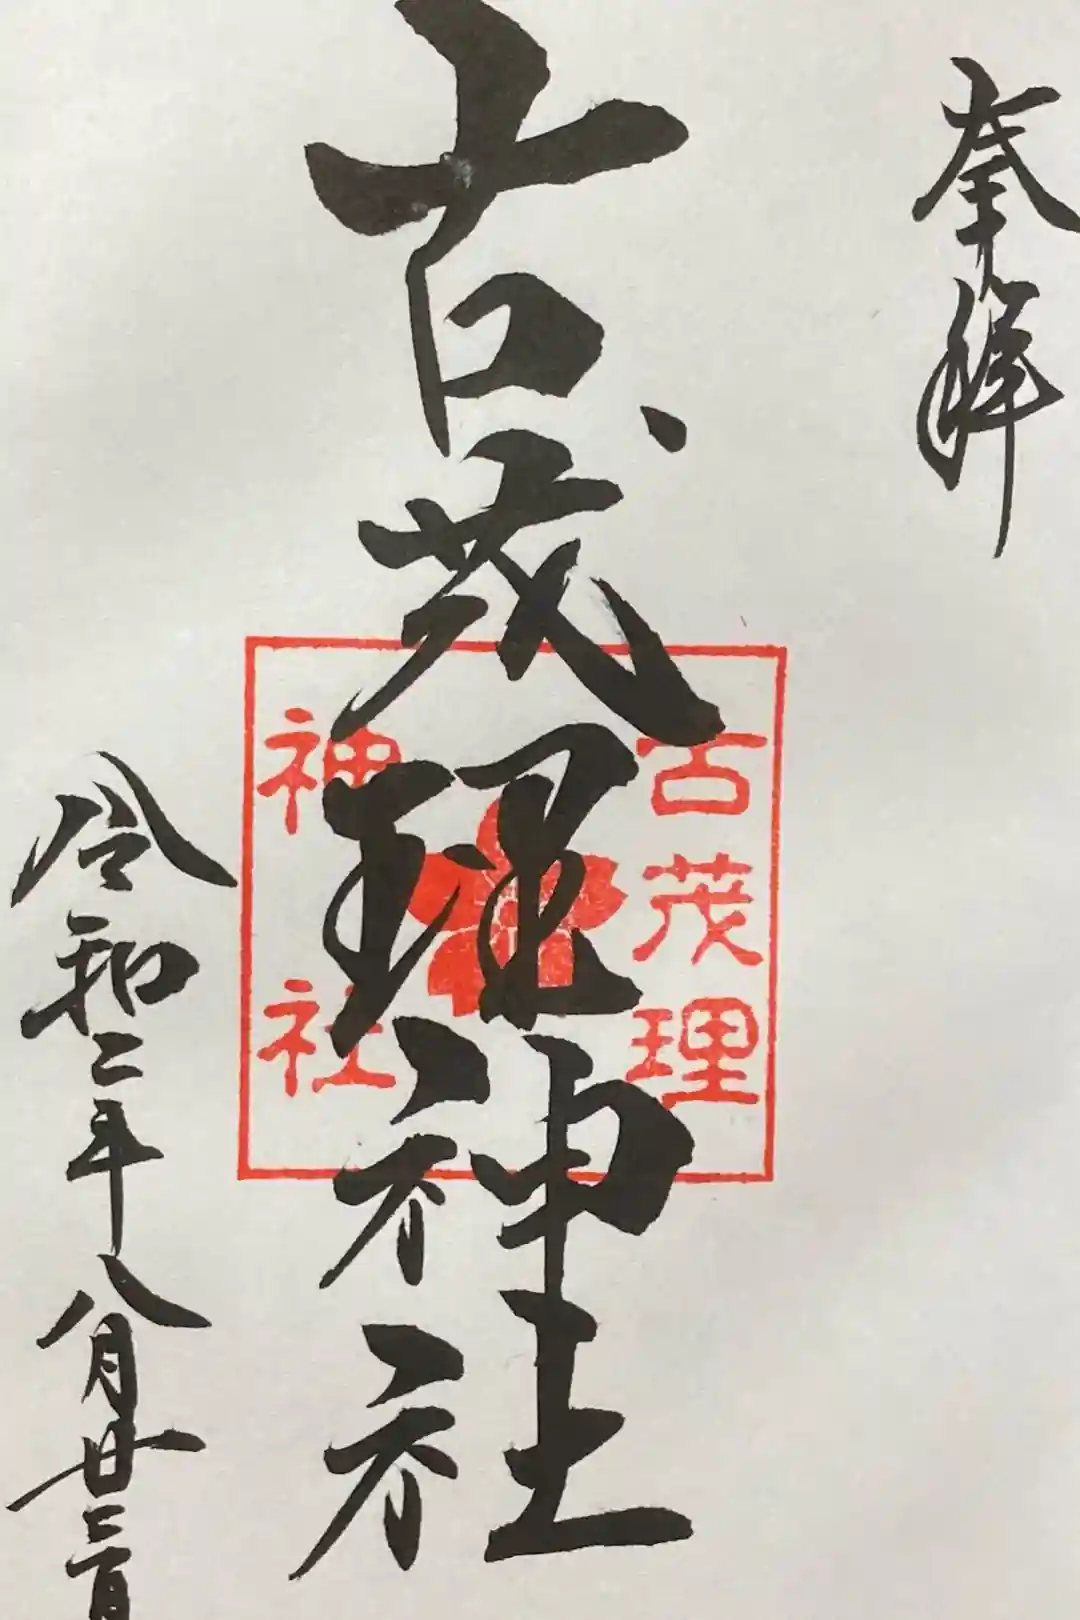 奉拝
古茂理神社
古茂理
神社
令和二年八月廿二日